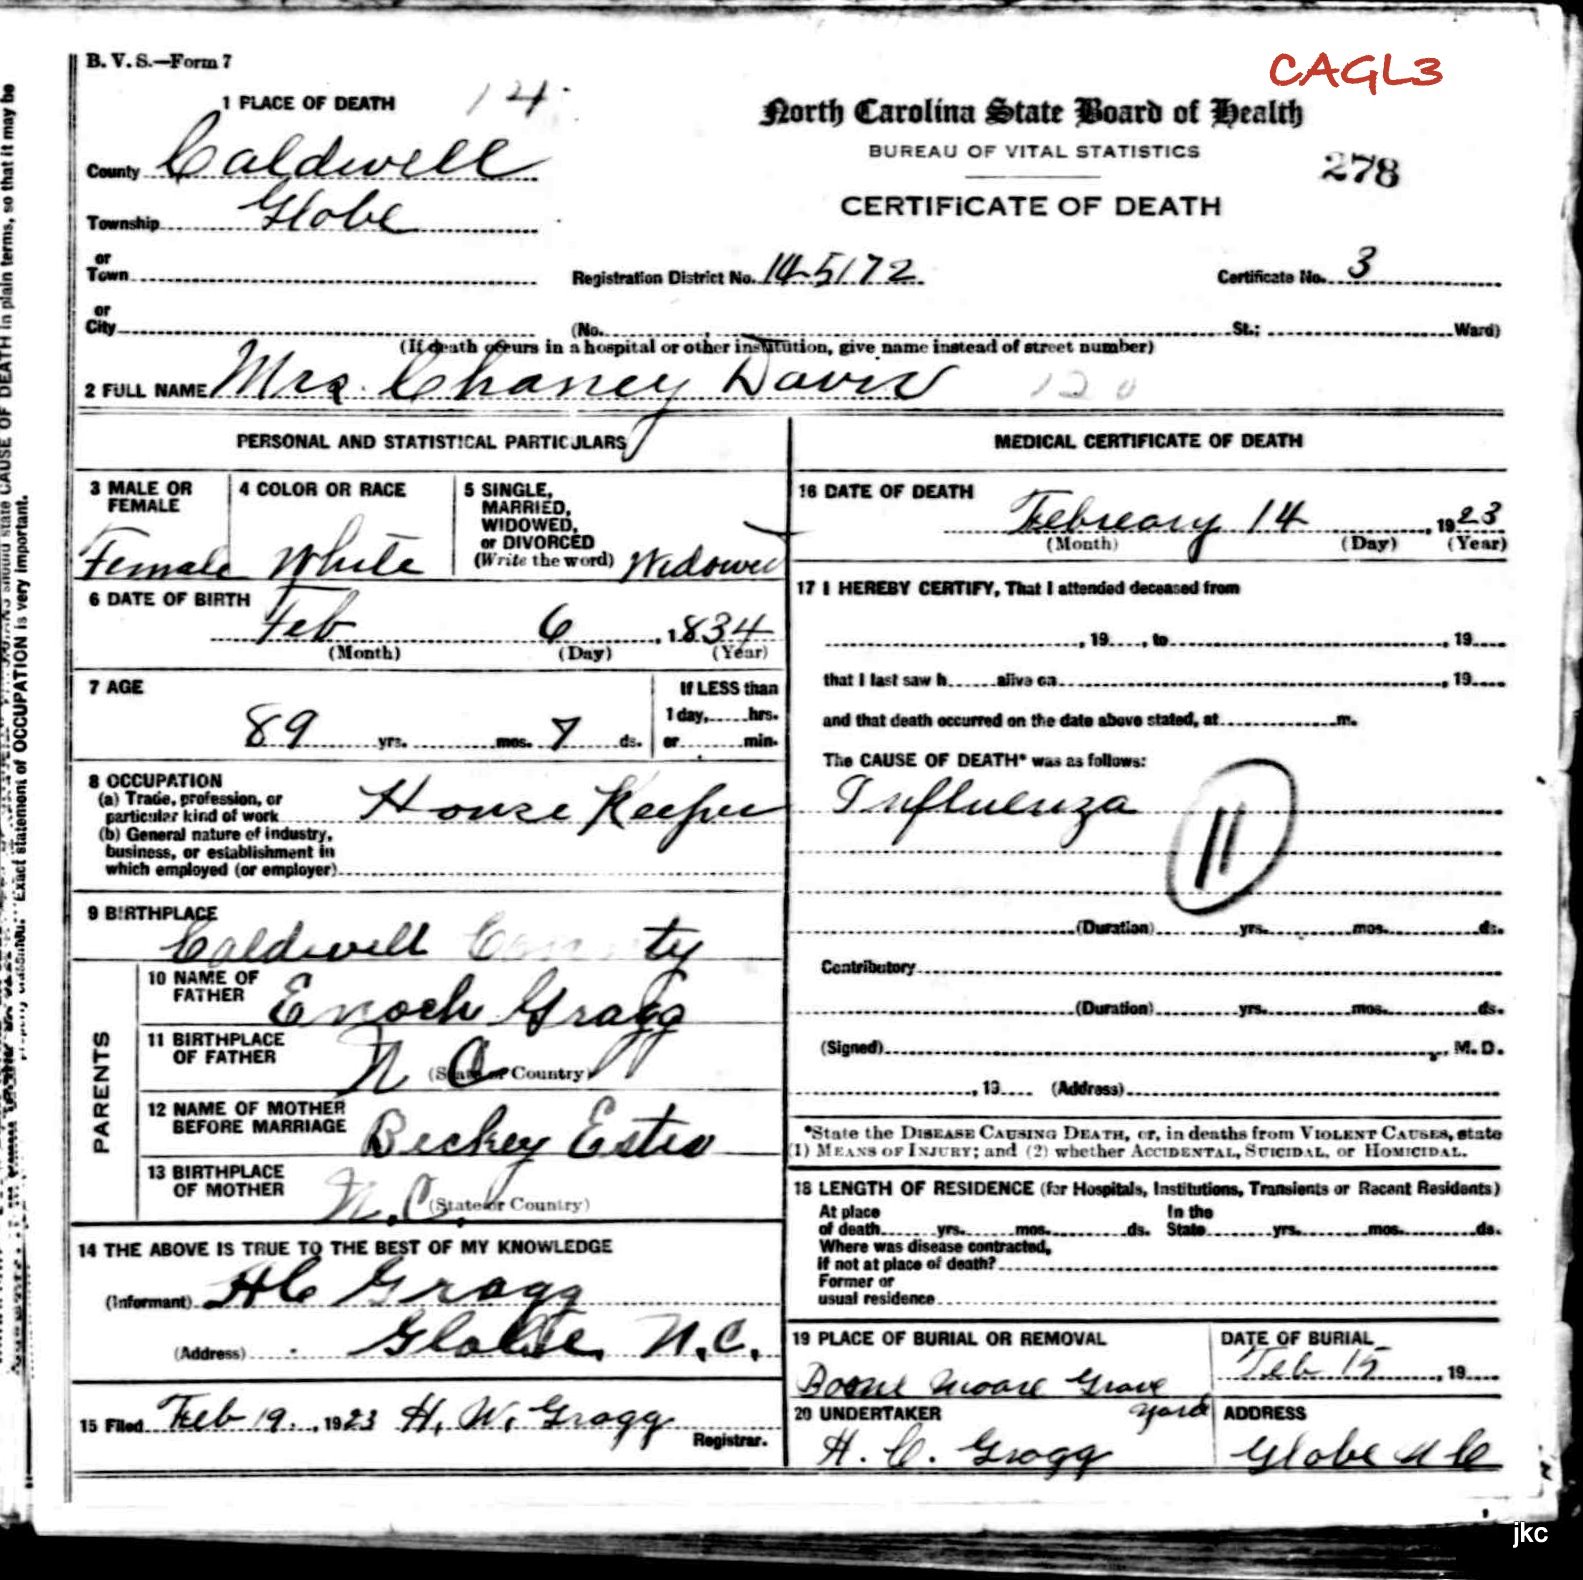 B. V. S.—Form 7
CAGL3
1 PLACE OF DEATH 14
North Carolina State Board of Health
BUREAU OF VITAL STATISTICS
278
CERTIFICATE OF DEATH
County Caldwell
Township Globe
or
Town
Registration District No. 145172
Certificate No. 3
or
City
(No. St.; Ward)
(If death occurs in a hospital or other institution, give name instead of street number)
2 FULL NAME Mrs. Chaney Davis 120
PERSONAL AND STATISTICAL PARTICULARS
3 MALE OR
FEMALE
Female
4 COLOR OR RACE
White
5 SINGLE,
MARRIED,
WIDOWED,
or DIVORCED
(Write the word) Widowed
6 DATE OF BIRTH
Feb 6, 1834
(Month) (Day) (Year)
7 AGE
89 yrs. mos. 7 ds.
If LESS than
1 day, hrs.
or min.
8 OCCUPATION
(a) Trade, profession, or
particular kind of work House Keeper
(b) General nature of industry,
business, or establishment in
which employed (or employer)
9 BIRTHPLACE
Caldwell County
PARENTS
10 NAME OF
FATHER Enoch Gragg
11 BIRTHPLACE
OF FATHER
N C (State or Country)
12 NAME OF MOTHER
BEFORE MARRIAGE Beckey Estes
13 BIRTHPLACE
OF MOTHER
N.C. (State or Country)
14 THE ABOVE IS TRUE TO THE BEST OF MY KNOWLEDGE
(Informant) H C Gragg
(Address) Globe, N.C.
15 Filed Feb 19, 1923 H. W. Gragg
Registrar.
MEDICAL CERTIFICATE OF DEATH
16 DATE OF DEATH
February 14, 1923
(Month) (Day) (Year)
17 I HEREBY CERTIFY, That I attended deceased from
, 19 , to , 19
that I last saw h alive on , 19
and that death occurred on the date above stated, at m.
The CAUSE OF DEATH* was as follows:
Influenza
11
(Duration) yrs. mos. ds.
Contributory
(Duration) yrs. mos. ds.
(Signed) , M. D.
, 19 (Address)
*State the DISEASE CAUSING DEATH, or, in deaths from VIOLENT CAUSES, state
(1) MEANS OF INJURY; and (2) whether ACCIDENTAL, SUICIDAL, or HOMICIDAL.
18 LENGTH OF RESIDENCE (for Hospitals, Institutions, Transients or Recent Residents)
At place In the
of death yrs. mos. ds. State yrs. mos. ds.
Where was disease contracted,
if not at place of death?
Former or
usual residence
19 PLACE OF BURIAL OR REMOVAL
Boone Moore Grave
yard
DATE OF BURIAL
Feb 15, 19
20 UNDERTAKER
H. C. Gragg
ADDRESS
Globe N C
CAUSE OF DEATH in plain terms, so that it may be
Exact statement of OCCUPATION is very important.
jkc